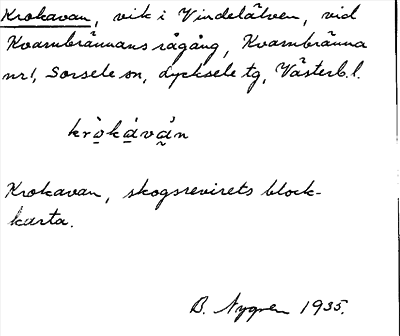 Krokavan, vik i Vindelälven, vid
Kvarnbrännans rågång, Kvarnbränna
nr 1, Sorsele sn, Lycksele tg, Västerb. l.
krò̱ká̱vá̱n
Krokavan, skogsrevirets block-
karta.
B. Nygren 1935.